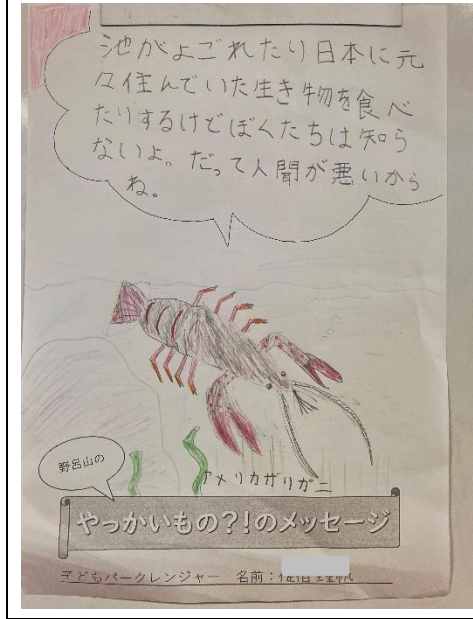 池がよごれたり日本に元
々住んでいた生き物を食べ
たりするけどぼくたちは知ら
ないよ。だって人聞が悪いから
ね。
アメリカザリガニ
野呂山の
やっかいもの?!のメッセージ
子どもパークレンジャー 名前: